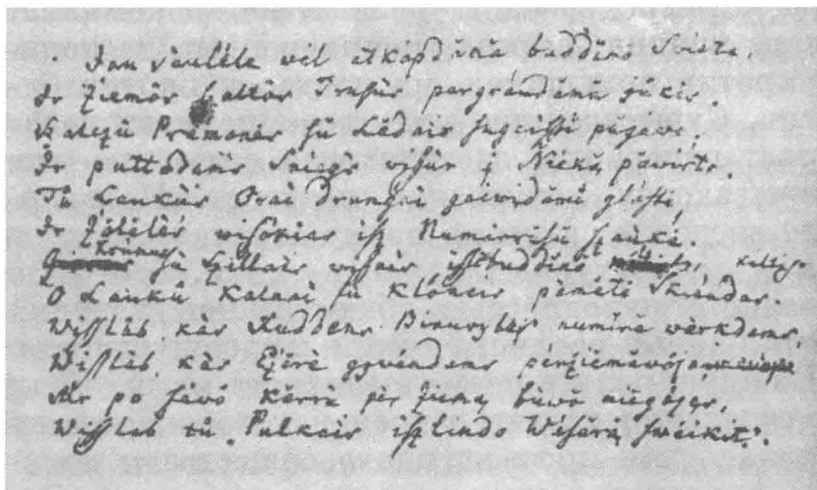 Jau Saulelė vėl atkópdama buddino Svieta,
Ir Żiemôs Szaltôs Trusus pargráudama jůkės.
Szalczû Prámonės sù Lėdais sugaiszti pagavo;
Ir puttodams Sniegs wissur į Nieką pavirto.
Tů Laukus Orai drungni gaividami glostė,
Ir Żoleles wissokias isz Numirrusû szaukė.
Krúmus sù Szillais wissais iszsibuddino keltis,
O Laukû Kalnai sù Klóneis pamėtė Skrandas.
Wisslab, kàs Ruddens Biaurybėj numirė werkdams,
Wisslab, kàs Eżerè gyvendams pérżiemavójo
Ar po sávo kerru per Żiemą buwo miegójęs,
Wisslab tů Pulkais iszlindo Wásarą sweikįt.